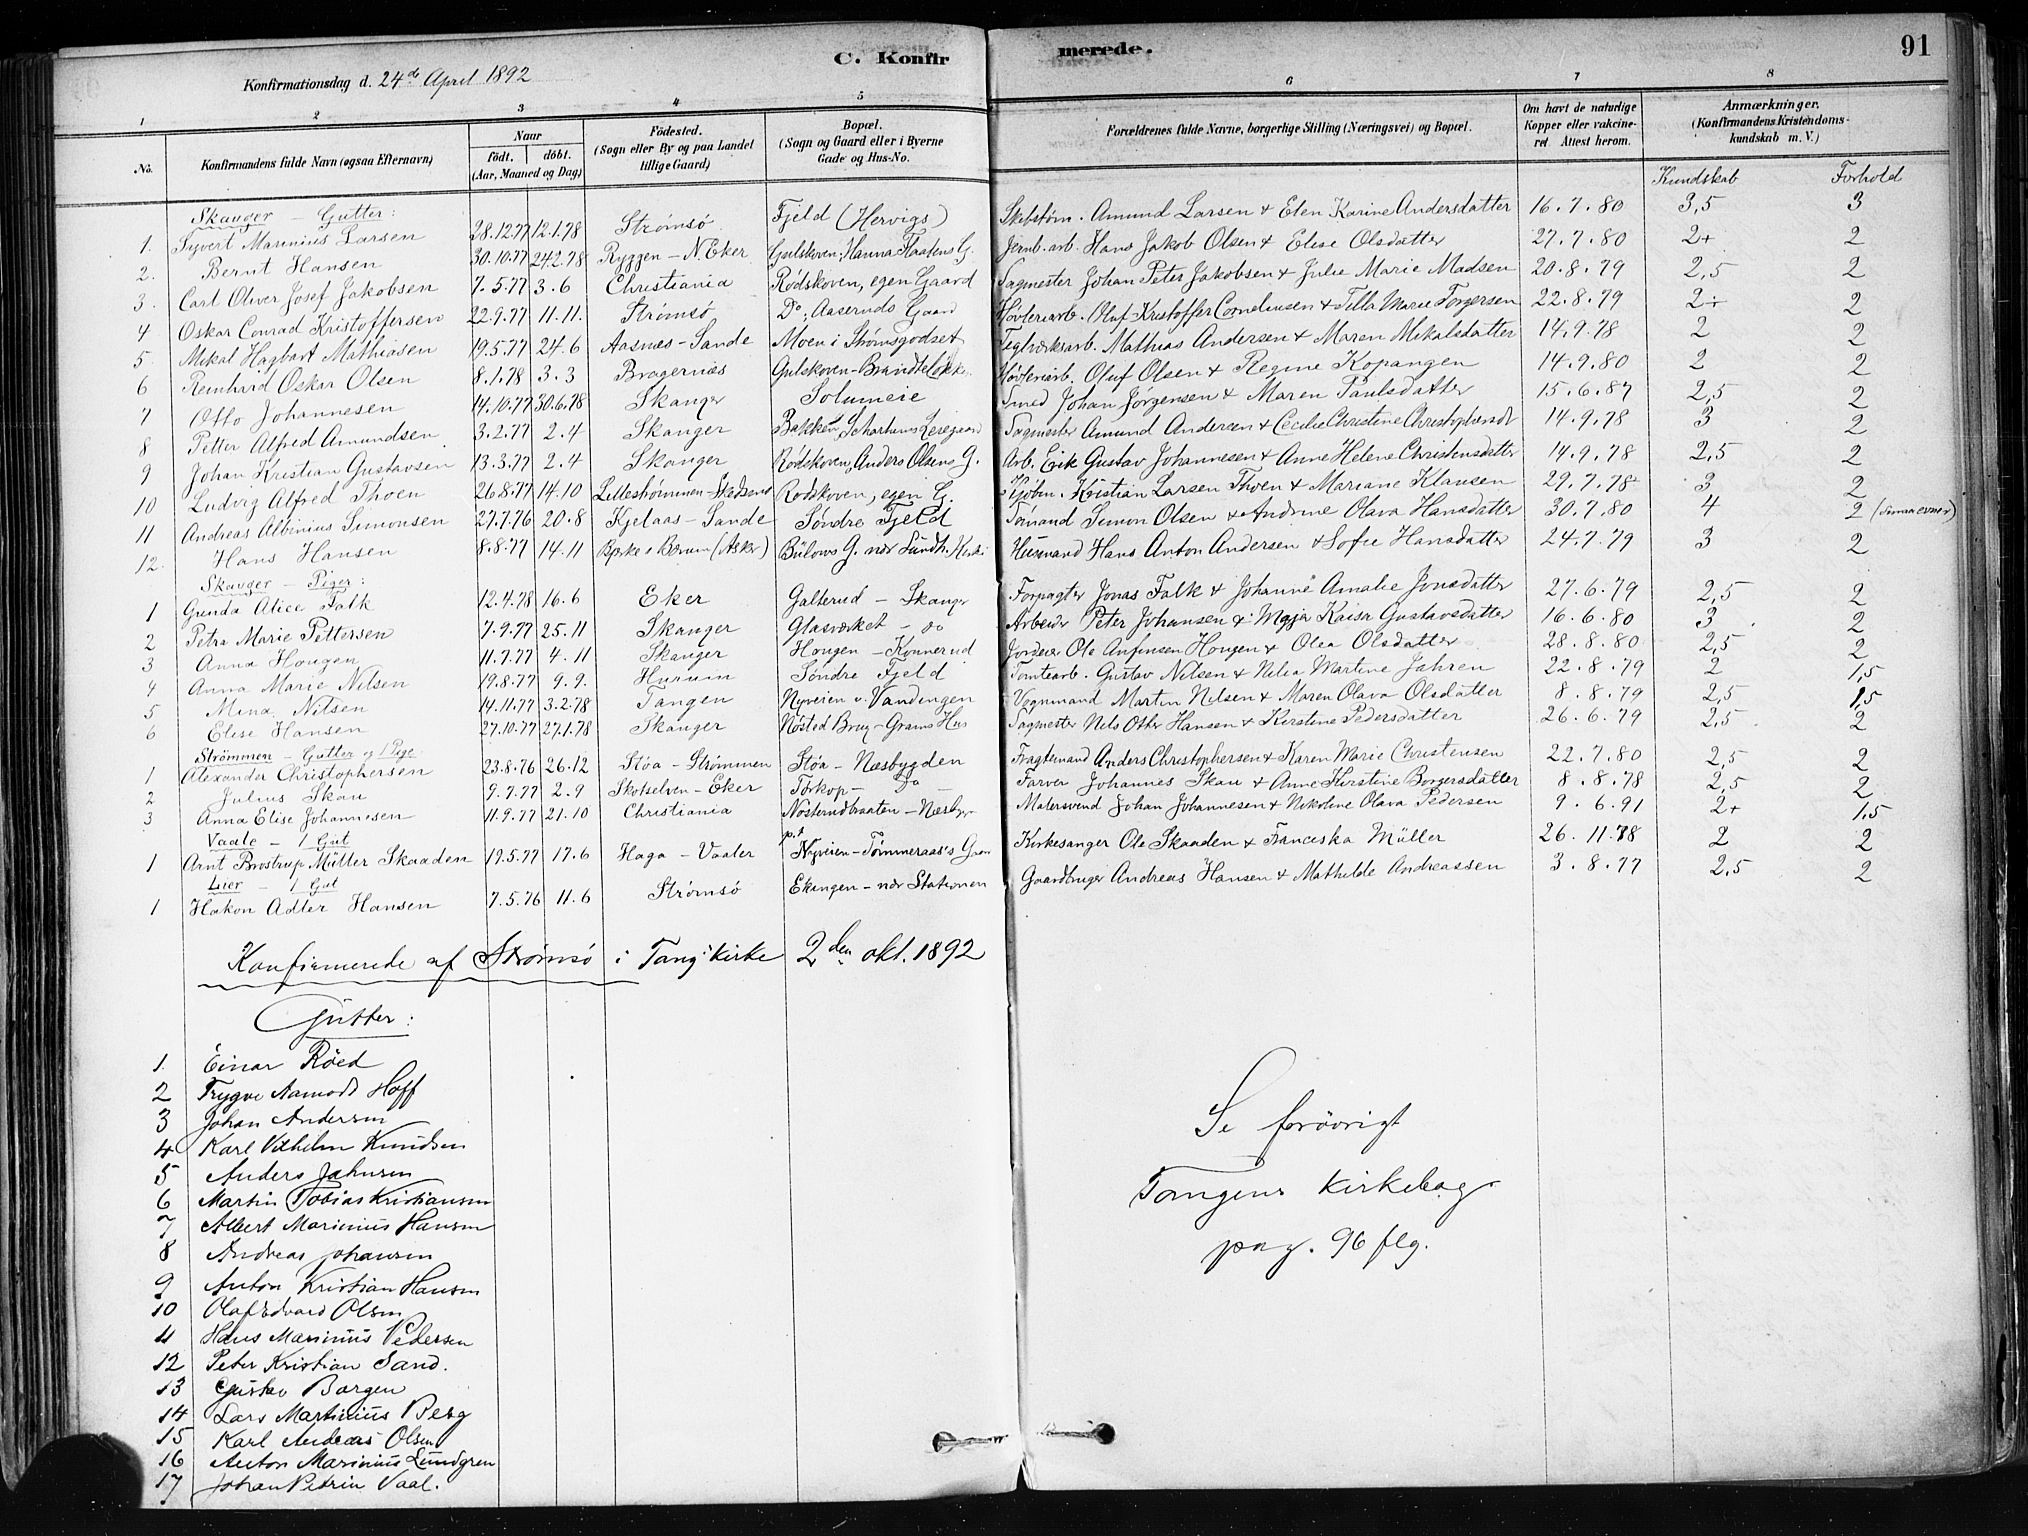 C. Konfirmerede.
91
Konfirmationsdag d. 24de April 1892
1 2 3 4 5 6 7 8
No. Konfirmandens fulde Navn (ogsaa Efternavn) Naar født. døbt. (Aar, Maaned og Dag) Fødested. (Sogn eller By og paa Landet tillige Gaard) Bopæl. (Sogn og Gaard eller i Byerne Gade og Hus-No. Forældrenes fulde Navne, borgerlige Stilling (Næringsvei) og Bopæl. Om havt de naturlige Kopper eller vakcineret. Attest herom. Anmærkninger. (Konfirmandens Kristendomskundskab m. V.)
Kundskab Forhold
Skauger – Gutter:
1. Syvert Marinius Larsen 28.12.77 12.1.78 Strømsø Fjeld (Hervigs) Skibstøm. Amund Larsen & Elen Karine Andersdatter 16.7.80 3,5 3
2. Bernt Hansen 30.10.77 24.2.78 Ryggen – N. Eker Gulskoven, Hanna Flaatens G. Jernb. arb. Hans Jakob Olsen & Elise Olsdatter 27.7.80 2+ 2
3. Carl Oliver Josef Jakobsen 7.5.77 3.6 Christiania Rødskoven, egen Gaard Sagmester Johan Peter Jakobsen & Julie Marie Madsen 20.8.79 2,5 2
4 Oskar Conrad Kristoffersen 22.9.77 11.11. Strømsø Do, Aaseruds Gaard Høvleriarb. Oluf Kristoffer Corneliussen & Marie Torgersen 22.8.79 2+ 2
5 Mikal Hagbart Mathiasen 19.5.77 24.6 Aasnæs – Sande Moen i Strømsgodset Teglværksarb. Mathias Andersen & Maren Mikalsdatter 14.9.78 2 2
6 Reinhard Oskar Olsen 8.1.78 3.3 Bragernæs Gulskoven – Brandteløkke Høvleriarb. Oluf Olsen & Regine Kopangen 14.9.80 2 2
7 Otto Johannesen 14.10.77 30.6.78 Skauger Solumeie Smed Johan Jørgensen & Maren Paulsdatter 15.6.87 2,5 2
8 Petter Alfred Amundsen 3.2.77 2.4 Skauger Bakken, Sagmester Amund Andersen & Cecilie Christine 14.9.78 3 2
9 Johan Kristian Gustavsen 13.3.77 2.4 Skauger Rødskoven, Anders Olsens G. Arb. Erik Gustav Johannesen & Anne Helene Christensdatter 14.9.78 2,5 2
10 Ludvig Alfred Thoen 26.8.77 14.10 Lillestrømmen – Skedsmo Rødskoven, egen G. Kjøbm. Kristian Larsen Thoen & Mariane Klausen 29.7.78 3 2
11 Andreas Albinius Simonsen 27.7.76 20.8 Kjelaas – Sande Søndre Fjeld Tømand Simon Olsen & Andrine Olava Hansdatter 30.7.80 4 2 (smaa evner)
12. Hans Hansen 8.8.77 14.11 Bærum (Asker) Bülows G. nær Sundh. Kirke Husmand Hans Anton Andersen & Sofie Hansdatter 24.7.79 3 2
Skauger – Piger:
1 Gunda Alice Falk 12.4.78 16.6 Eker Galterud – Skauger Forpagter Jonas Falk & Johanne Amalie Jonsdatter 27.6.79 2,5 2
2 Petra Marie Pettersen 7.9.77 25.11 Skauger Glasværket – do Arbeider Peter Johansen & Maja Kaisa Gustavsdatter 16.6.80 3 2
3 Anna Hougen 11.7.77 4.11 Skauger Hougen – Konnerud Jordeier Ole Anfinsen Hougen & Olea Olsdatter 28.8.80 2,5 2
4 Anna Marie Nilsen 19.8.77 9.9. Hurum Søndre Fjeld Tomtearb. Gustav Nilsen & Nilia Martine Jahren 22.8.79 2 1,5
5 Mina Nilsen 14.11.77 3.2.78 Tangen Nyveien v. Vandingen Vognmand Martin Nilsen & Maren Olava Olsdatter 8.8.79 2,5 1,5
6 Elise Hansen 27.10.77 27.1.78 Skauger Nøsted Brug – Grams Hus Sagmester Nels Otter Hansen & Kirstine Pedersdatter 26.6.79 2,5 2
Strømmen – Gutter og 1 Pige
1 Alexander Christophersen 23.8.76 26.12 Støa – Strømmen Støa – Næsbygden Fragtemand Anders Christophersen & Karen Marie Christensen 22.7.80 2,5 2
2 Julius Skau 9.7.77 2.9 Skotselven – Eker Tørkop – Do Farver Johannes Skau & Anne Kirstine Borgersdatter 8.8.78 2,5 2
3 Anna Elise Johannesen 11.9.77 21.10 Christiania Nøsterudbraaten – Næsbyg Malersvend Johan Johannesen & Nikoline Olava Pedersen 9.6.91 2+ 1,5
Vaale – 1 Gut
1 Arnt Brostrup Müller Skaaden 19.5.77 17.6 Haga – Vaaler p.t. Nyveien – Tømmeraas's Gaard Kirkesanger Ole Skaaden & Franciska Müller 26.11.78 2 2
Lier – 1 Gut
1 Hakon Adler Hansen 7.5.76 11.6 Strømsø Ekangen – nær Stationen Gaardbruger Andreas Hansen & Mathilde Andreassen 3.8.77 2,5 2
Konfirmerede af Strømsø i Tang. kirke 2den okt. 1892
Gutter:
1. Einar Røed
2 Trygve Aamodt Hoff
3 Johan Andersen
4 Karl Vilhelm Knudsen
5 Anders Jahnsen
6 Martin Tobias Kristiansen
7 Albert Marinius Hansen
8 Andreas Johansen
9 Anton Kristian Hansen
10 Olaf Edvard Olsen
11 Hans Marinius Pedersen
12 Peter Kristian Sand.
13 Gustav Borgen
14 Lars Martinius Berg
15 Karl Andreas Olsen
16 Anton Marinius Lundgren
17 Johan Petrin Vaal.
Se forøvrigt
Tangens kirkebog
pag. 96 flg.